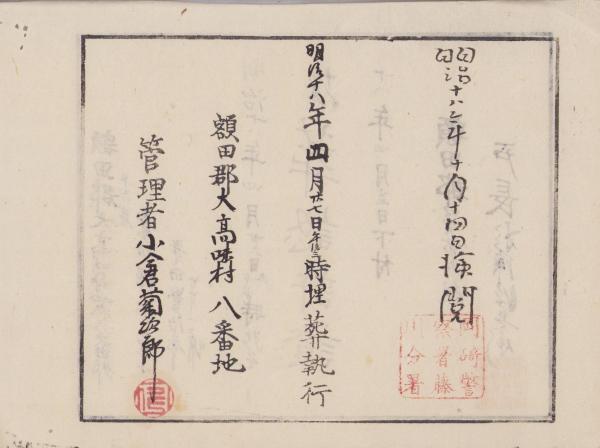 明治十八年十月十四日検閲
岡崎警
察署藤
川分署
明治十八年四月廿七日午后三時埋葬執行
額田郡大高味村八番地
管理者小倉菊次郎